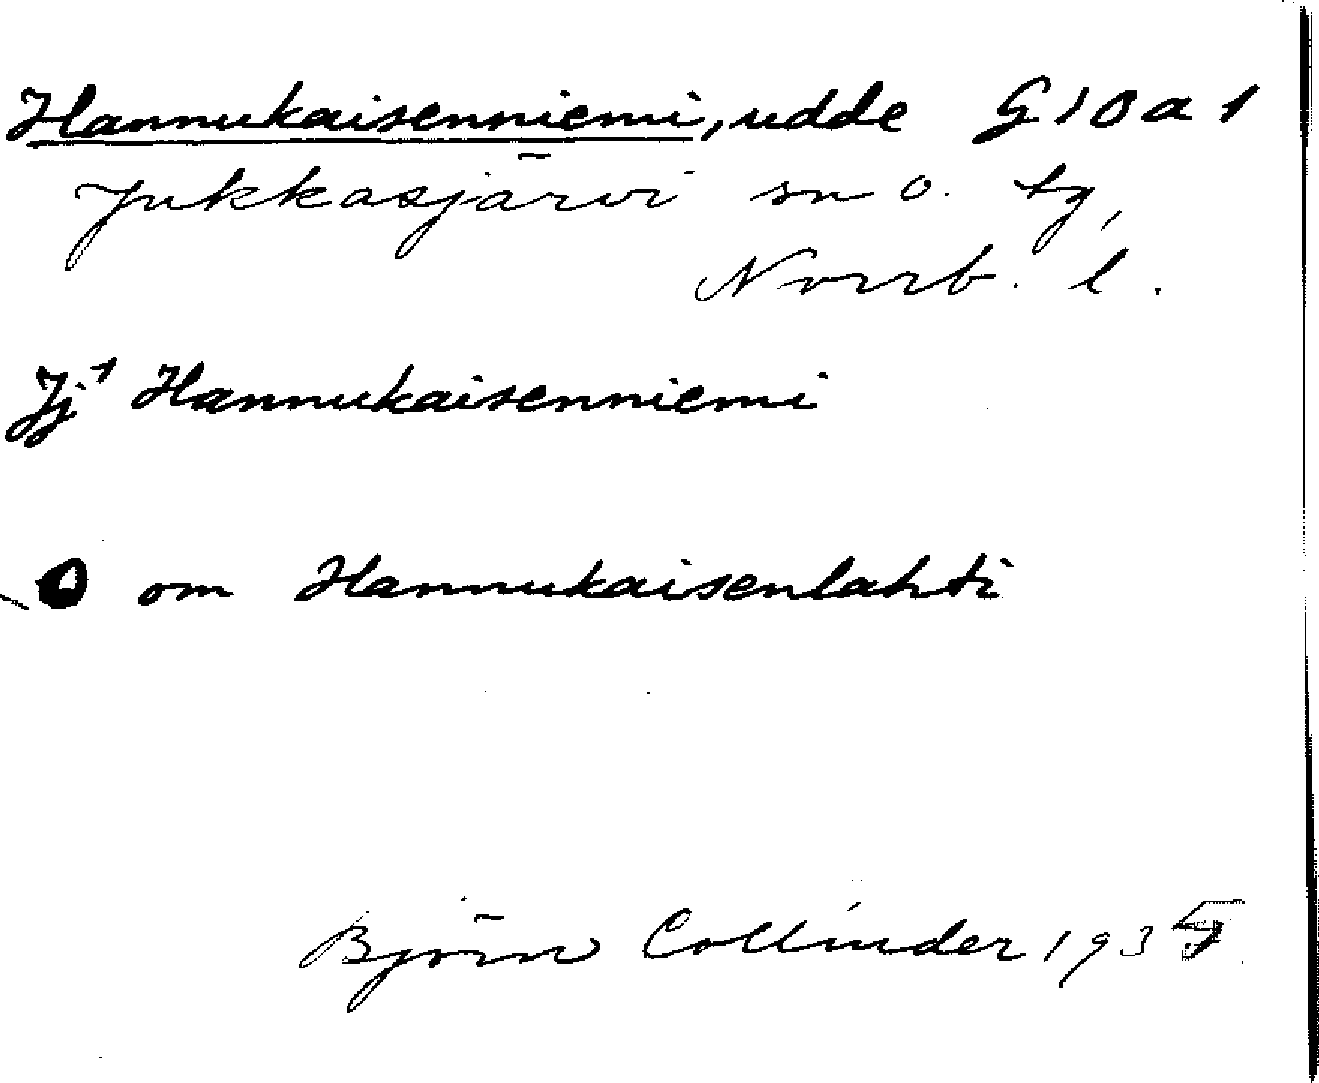 Hannukaisenniemi, udde G 10 a 1
Jukkasjärvi sn o. tg,
Norrb. l.
Jj¹ Hannukaisenniemi
O om Hannukaisenlahti
Björn Collinder